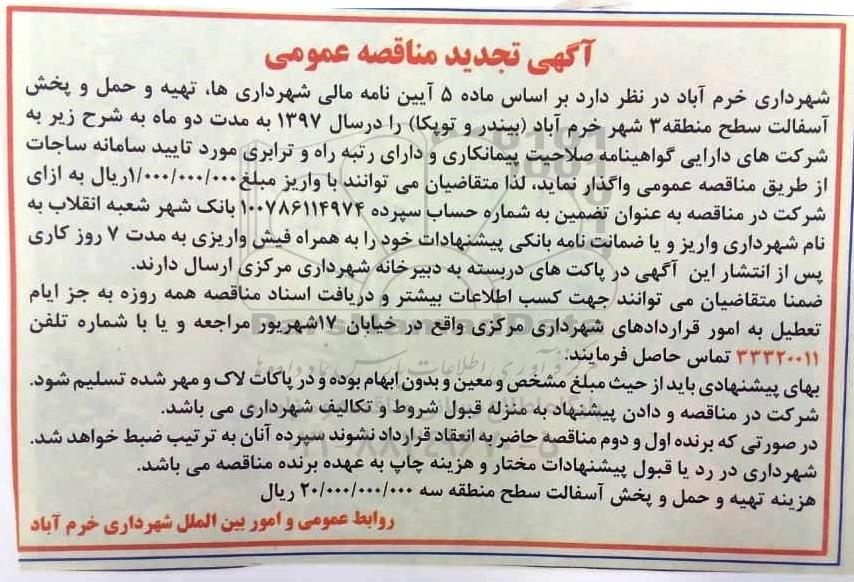 آگهی تجدید مناقصه عمومی
شهرداری خرم آباد در نظر دارد بر اساس ماده ۵ آیین نامه مالی شهرداری ها، تهیه و حمل و پخش
آسفالت سطح منطقه۳ شهر خرم آباد (بیندر و توپکا) را درسال ۱۳۹۷ به مدت دو ماه به شرح زیر به
شرکت های دارایی گواهینامه صلاحیت پیمانکاری و دارای رتبه راه و ترابری مورد تایید سامانه ساجات
از طریق مناقصه عمومی واگذار نماید، لذا متقاضیان می توانند با واریز مبلغ ۱/۰۰۰/۰۰۰/۰۰۰ریال به ازای
شرکت در مناقصه به عنوان تضمین به شماره حساب سپرده ۱۰۰۷۸۶۱۱۴۹۷۴ بانک شهر شعبه انقلاب به
نام شهرداری واریز و یا ضمانت نامه بانکی پیشنهادات خود را به همراه فیش واریزی به مدت ۷ روز کاری
پس از انتشار این آگهی در پاکت های دربسته به دبیرخانه شهرداری مرکزی ارسال دارند.
ضمنا متقاضیان می توانند جهت کسب اطلاعات بیشتر و دریافت اسناد مناقصه همه روزه به جز ایام
تعطیل به امور قراردادهای شهرداری مرکزی واقع در خیابان ۱۷شهریور مراجعه و یا با شماره تلفن
۳۳۳۲۰۰۱۱ تماس حاصل فرمایند.
بهای پیشنهادی باید از حیث مبلغ مشخص و معین و بدون ابهام بوده و در پاکات لاک و مهر شده تسلیم شود.
شرکت در مناقصه و دادن پیشنهاد به منزله قبول شروط و تکالیف شهرداری می باشد.
در صورتی که برنده اول و دوم مناقصه حاضر به انعقاد قرارداد نشوند سپرده آنان به ترتیب ضبط خواهد شد.
شهرداری در رد یا قبول پیشنهادات مختار و هزینه چاپ به عهده برنده مناقصه می باشد.
هزینه تهیه و حمل و پخش آسفالت سطح منطقه سه ۲۰/۰۰۰/۰۰۰/۰۰۰ ریال
روابط عمومی و امور بین الملل شهرداری خرم آباد